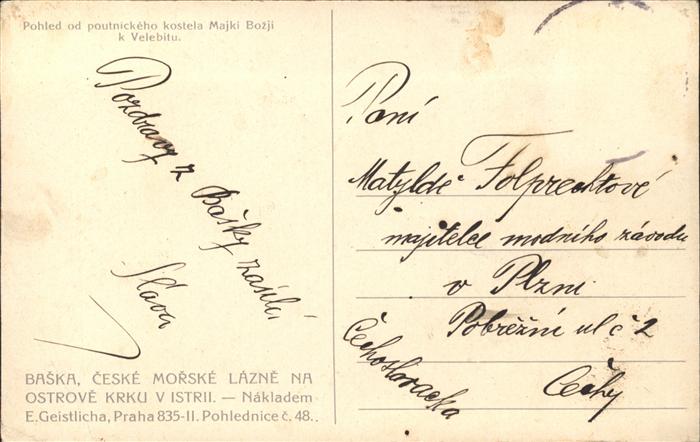 Pohled od poutnického kostela Majki Božji
k Velebitu.
Pozdravy z Bašky zasílá
Sláva
BAŠKA, ČESKÉ MOŘSKÉ LÁZNĚ NA
OSTROVĚ KRKU V ISTRII. — Nákladem
E. Geistlicha, Praha 835-II. Pohlednice č. 48.
Paní
Matyldě Folprechtové
majitelce modního závodu
v Plzni
Pobřežní ul č 2
Čechy
Čechoslovacka